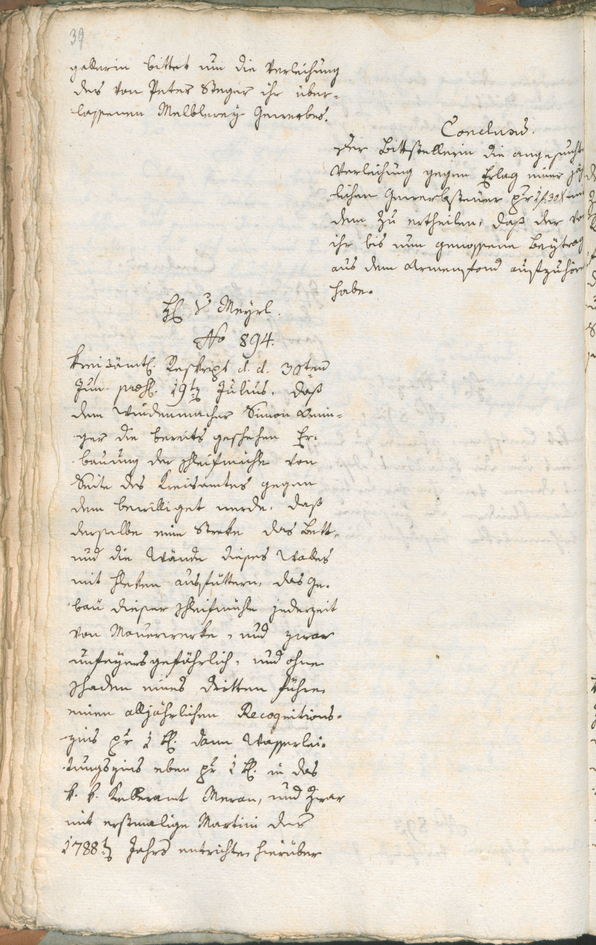 39
gallerin bittet um die Verleihung
des von Peter Steger ihr über-
lassenen Melblerey Gewerbes.
Conclus.
Der Bittstellerin die angesuchte
Verleihung gegen Erlag einer jähr
lichen Gewerbsteuer pr 1 f 30 x
dem zu ertheilen, daß der von
ihr bis nun genossene Beytrag
aus dem Armenfond aufzuhören
habe.
Meyrl.
No 894.
Kreisämtl. Reskript d. d. 30ten
Jun. praes. 19ten Julius. daß
dem Windenmacher Simon
ger die bereits geschehene Er-
bauung der Schleifmühle von
Seite des Kreisamtes gegen
dem bewilliget werde, daß
derselbe eine Streke das Bett,
und die Wände dieses Wales
mit Fleken ausfüttern, das Ge-
bäu dieser Schleifmühle jederzeit
von Mauerwerke, und zwar
unfeyersgefährlich, und ohne
Schaden eines dritten führe,
einen alljährlichen Recognitions-
zins pr 1 kr. dann Wasserlei-
tungszins eben pr 1 kr. in das
k. k. Kelleramt Meran, und zwar
mit erstmalige Martini des
1788ten Jahrs entrichte, hierüber